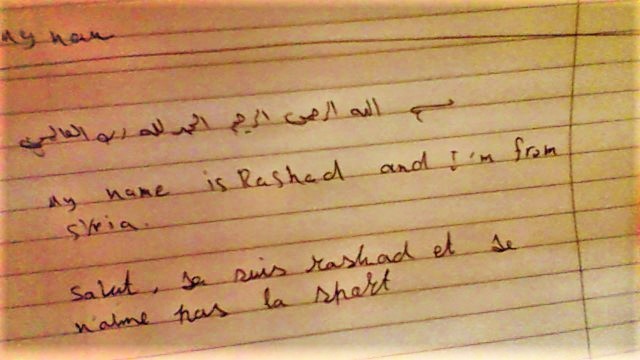 My nam
بسم الله الرحمن الرحيم الحمد لله رب العالمين
My name is Rashad and I'm from
syria.
Salut, Je suis rashad et Je
n'aime pas la sport